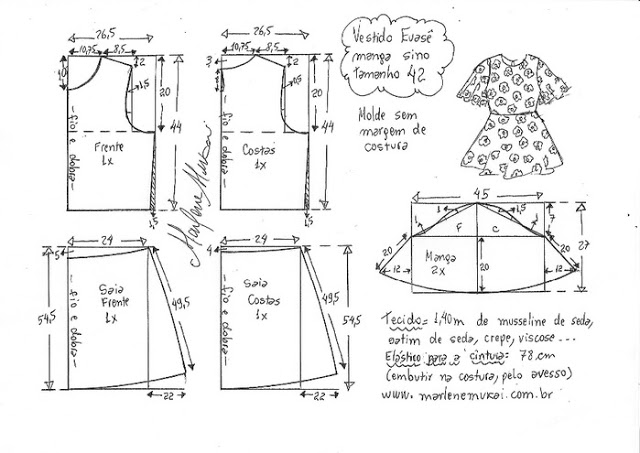 Vestido Evasê
manga sino
tamanho 42
Molde sem
margem de
costura
26,5
10,75 8,5
2
10
1,5
20
44
fio e dobra
Frente
1x
1,5
26,5
10,75 8,5
3
2
1,5
20
44
fio e dobra
Costas
1x
1,5
Marlene Mukai
24
5
54,5
fio e dobra
Saia
Frente
1x
49,5
22
24
4
fio e dobra
Saia
Costas
1x
49,5
54,5
22
45
1
1,5
1
1
7
F C
27
20
20
Manga
2x
12
20
12
Tecido= 1,40m de musseline de seda,
cetim de seda, crepe, viscose...
Elástico para a cintura= 78 cm
(embutir na costura, pelo avesso)
www.marlenemukai.com.br